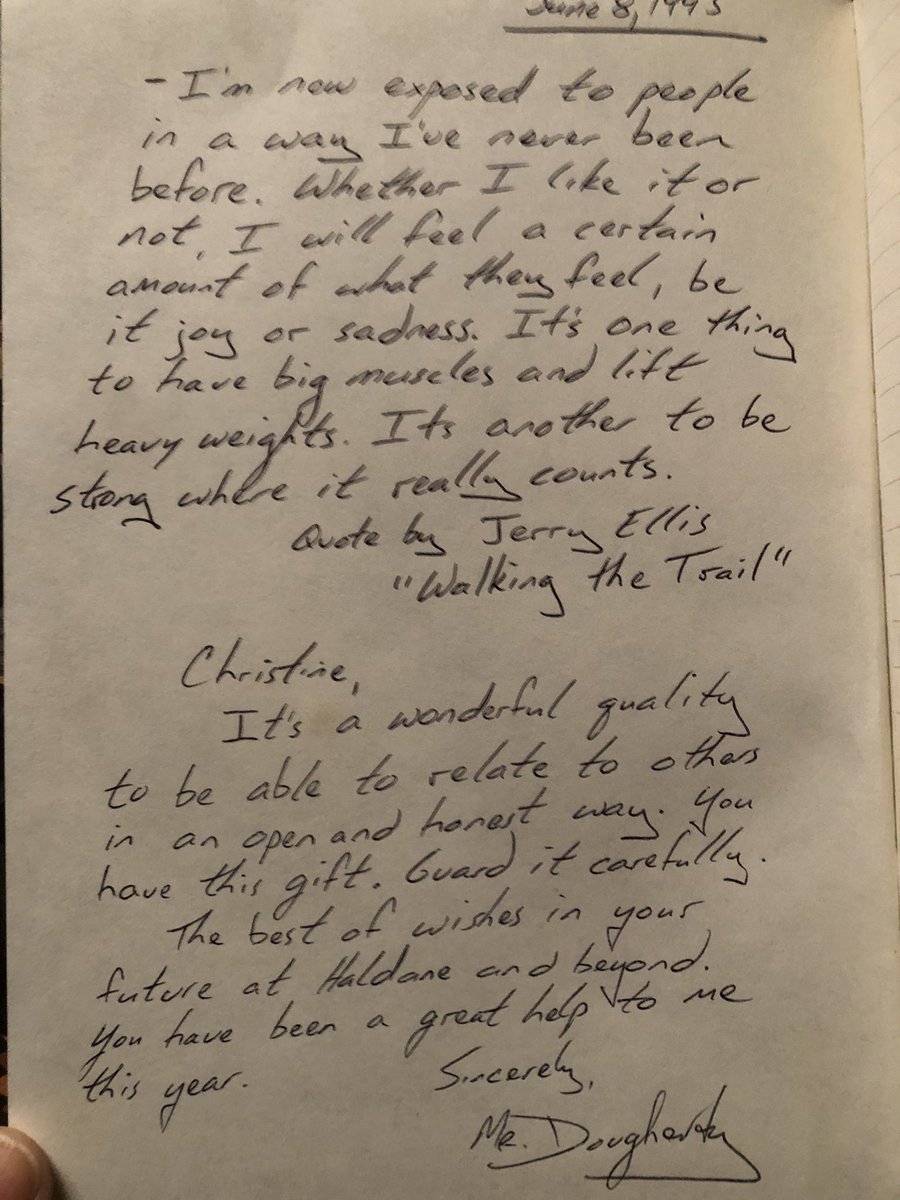 June 8, 1993
- I'm now exposed to people
in a way I've never been
before. Whether I like it or
not, I will feel a certain
amount of what they feel, be
it joy or sadness. It's one thing
to have big muscles and lift
heavy weights. Its another to be
strong where it really counts.
Quote by Jerry Ellis
"Walking the Trail"
Christine,
It's a wonderful quality
to be able to relate to others
in an open and honest way. You
have this gift. Guard it carefully.
The best of wishes in your
future at Haldane and beyond.
You have been a great help to me
this year.
Sincerely,
Mr. Dougherty